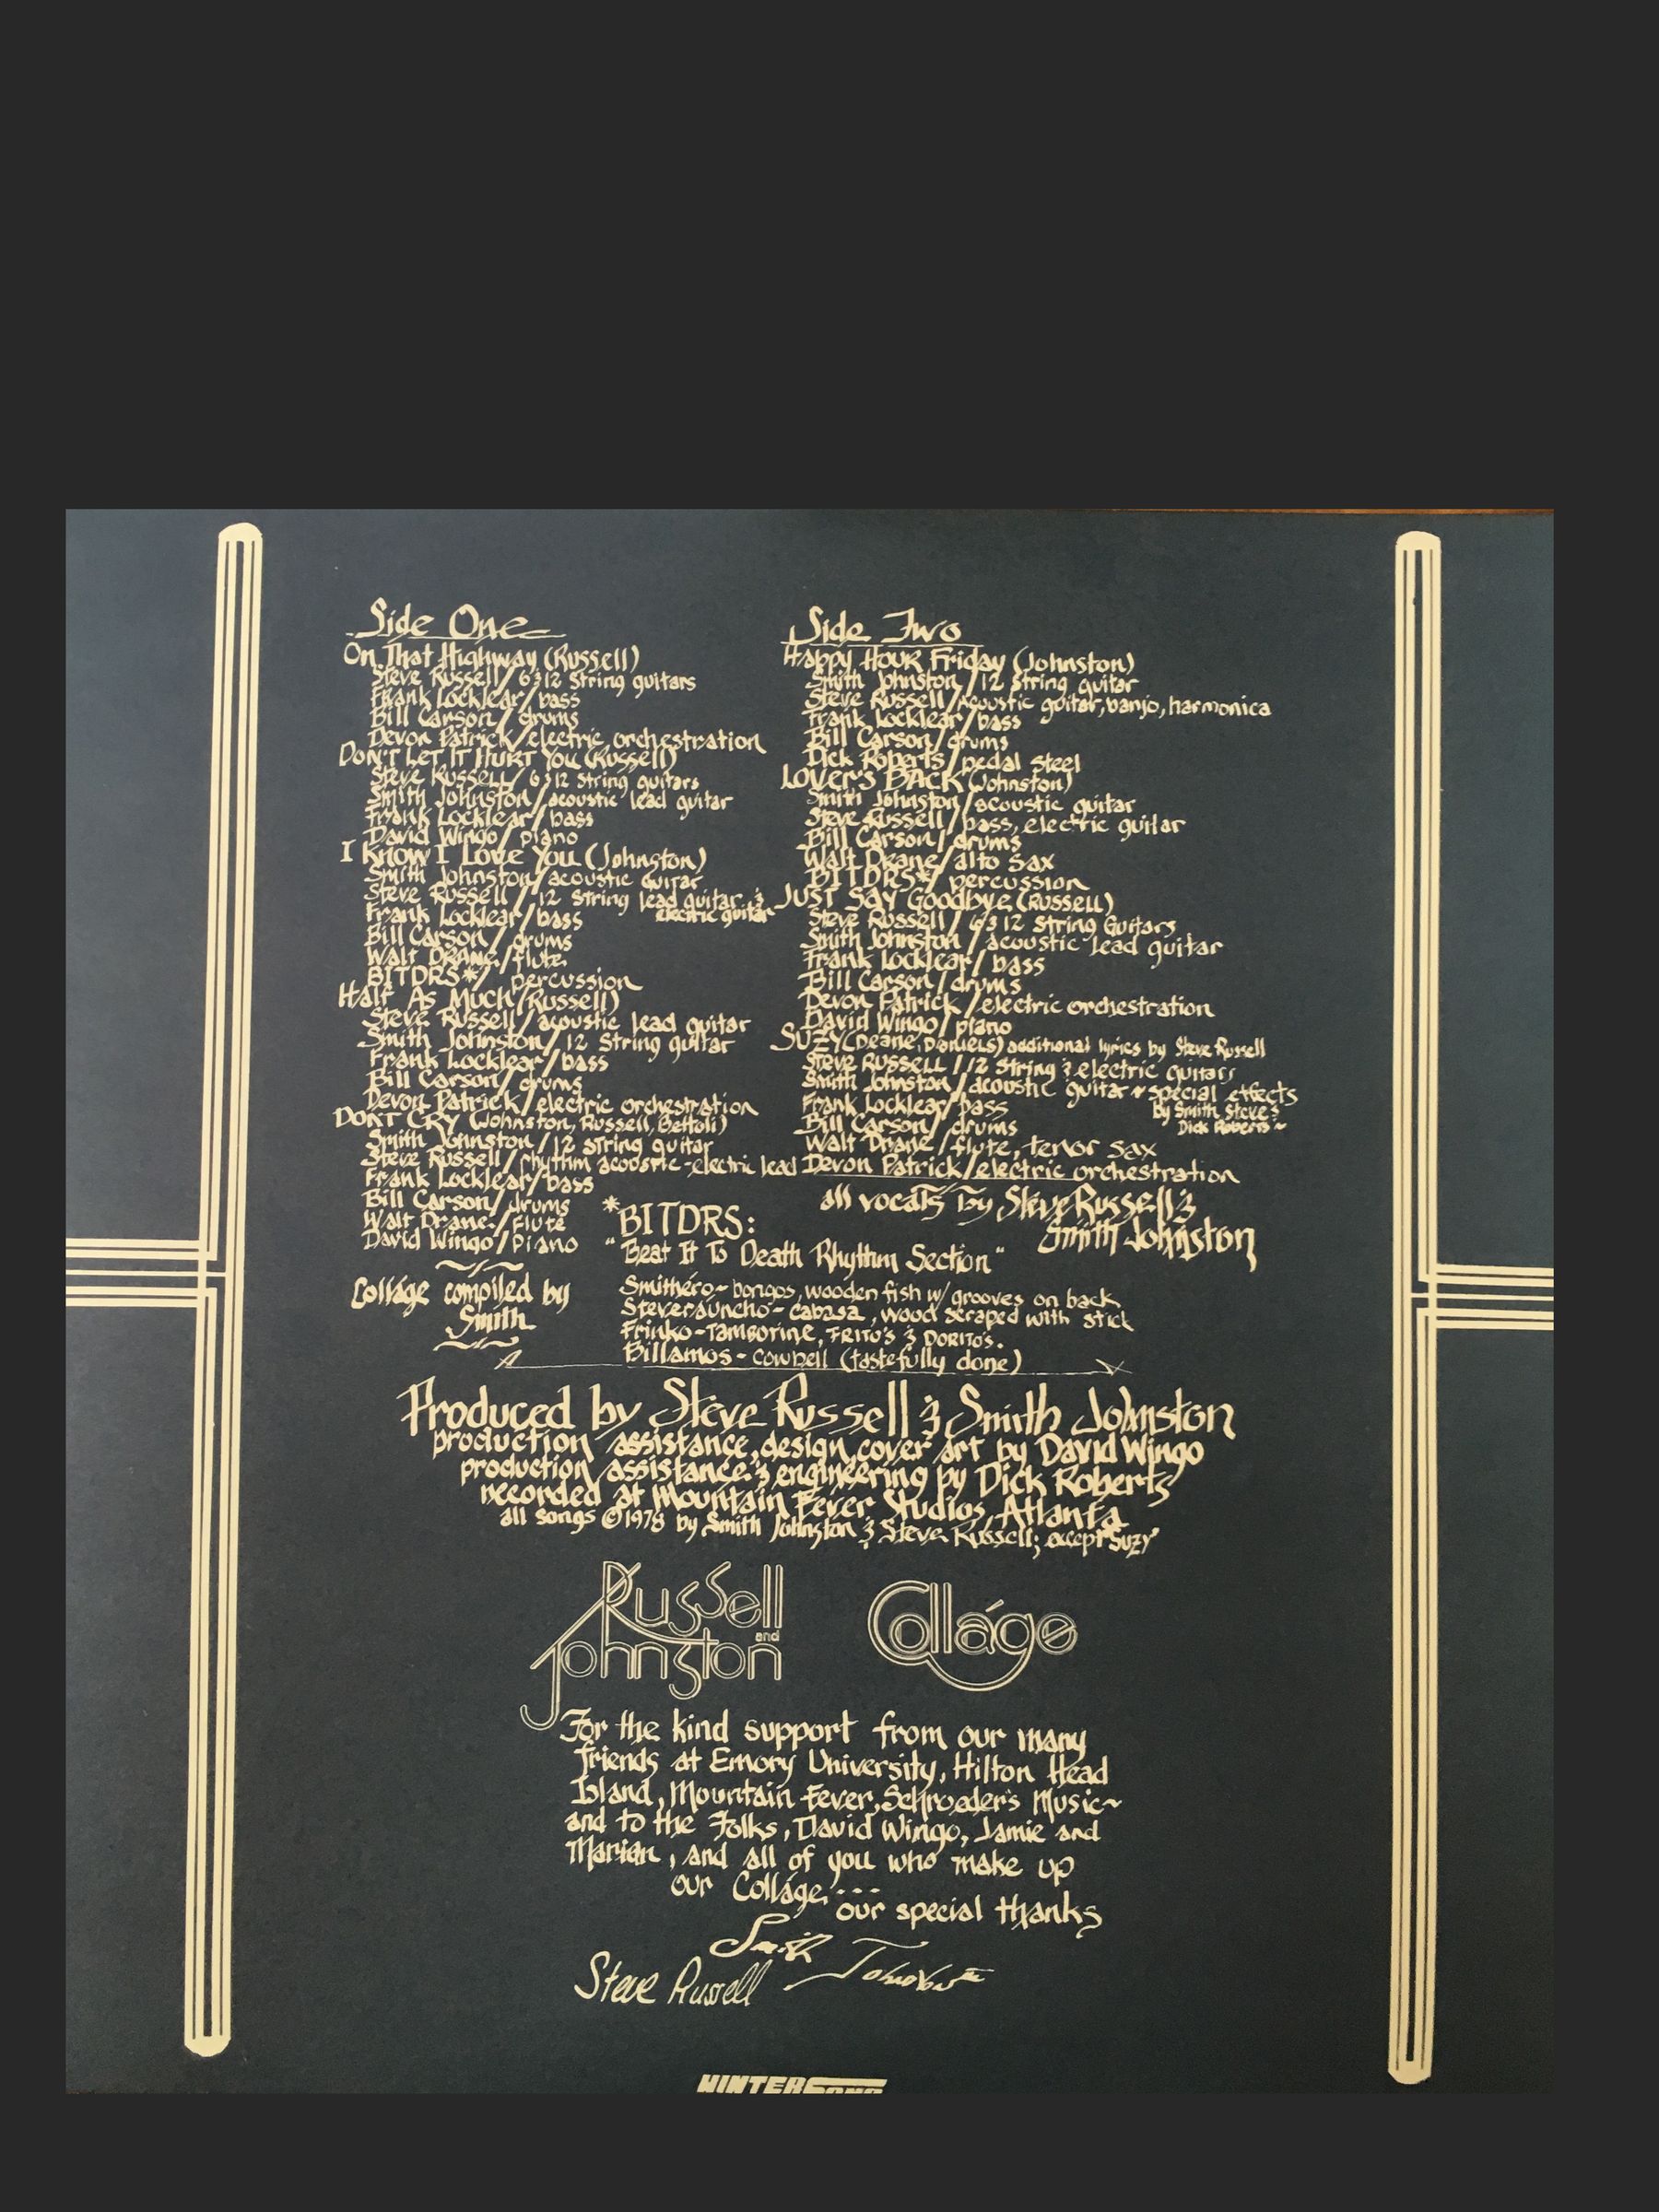 Side One
On That Highway (Russell)
Steve Russell / 6 & 12 String guitars
Frank Locklear / bass
Bill Carson / drums
Devon Patrick / electric orchestration
DON'T LET IT HURT YOU (Russell)
Steve Russell / 6 & 12 String guitars
Smith Johnston / acoustic lead guitar
Frank Locklear / bass
David Wingo / piano
I Know I Love You (Johnston)
Smith Johnston / acoustic guitar
Steve Russell / 12 String lead guitar &
electric guitar
Frank Locklear / bass
Bill Carson / drums
Walt DRANE / flute
BITDRS* / percussion
Half As Much (Russell)
Steve Russell / acoustic lead guitar
Smith Johnston / 12 String guitar
Frank Locklear / bass
Bill Carson / drums
Devon Patrick / electric orchestration
DON'T CRY (Johnston, Russell, Bettoli)
Smith Johnston / 12 String guitar
Steve Russell / rhythm acoustic - electric lead
Frank Locklear / bass
Bill Carson / drums
Walt Drane / Flute
David Wingo / Piano
Colláge compiled by
Smith
Side Two
Happy HOUR Friday (Johnston)
Smith Johnston / 12 String guitar
Steve Russell / Acoustic guitar, banjo, harmonica
Frank Locklear / bass
Bill Carson / drums
Dick Roberts / pedal steel
LOVER'S BACK (Johnston)
Smith Johnston / acoustic guitar
Steve Russell / bass, electric guitar
Bill Carson / drums
Walt Drane / alto sax
BITDRS* / percussion
JUST SAY Goodbye (RUSSELL)
Steve Russell / 6 & 12 String Guitars
Smith Johnston / acoustic lead guitar
Frank Locklear / bass
Bill Carson / drums
Devon Patrick / electric orchestration
David Wingo / piano
SUZY (Deane, Daniels) additional lyrics by Steve Russell
Steve RUSSELL / 12 String & electric guitars
Smith Johnston / acoustic guitar ~ special effects
by Smith Steve &
Dick Roberts ~
Frank Locklear / bass
Bill Carson / drums
Walt Drane / flute, tenor sax
Devon Patrick / electric orchestration
all vocals by Steve Russell &
Smith Johnston
*BITDRS:
"Beat It To Death Rhythm Section"
Smithero ~ bongos, wooden fish w/ grooves on back
Steverauncho - cabasa, wood scraped with stick
Frinko - Tamborine, FRITO'S & DORITO'S.
Billamos - cowbell (tastefully done)
Produced by Steve Russell & Smith Johnston
production assistance, design, cover art by David Wingo
production assistance & engineering by Dick Roberts
recorded at Mountain Fever Studios, Atlanta
all songs ©1978 by Smith Johnston & Steve Russell; except "Suzy"
Russell
and
Johnston
Colláge
For the kind support from our many
friends at Emory University, Hilton Head
Island, Mountain Fever, Schroeder's Music~
and to the Folks, David Wingo, Jamie and
Marian, and all of you who make up
our Colláge...
our special thanks
Smith Johnston
Steve Russell
WINTERSONG